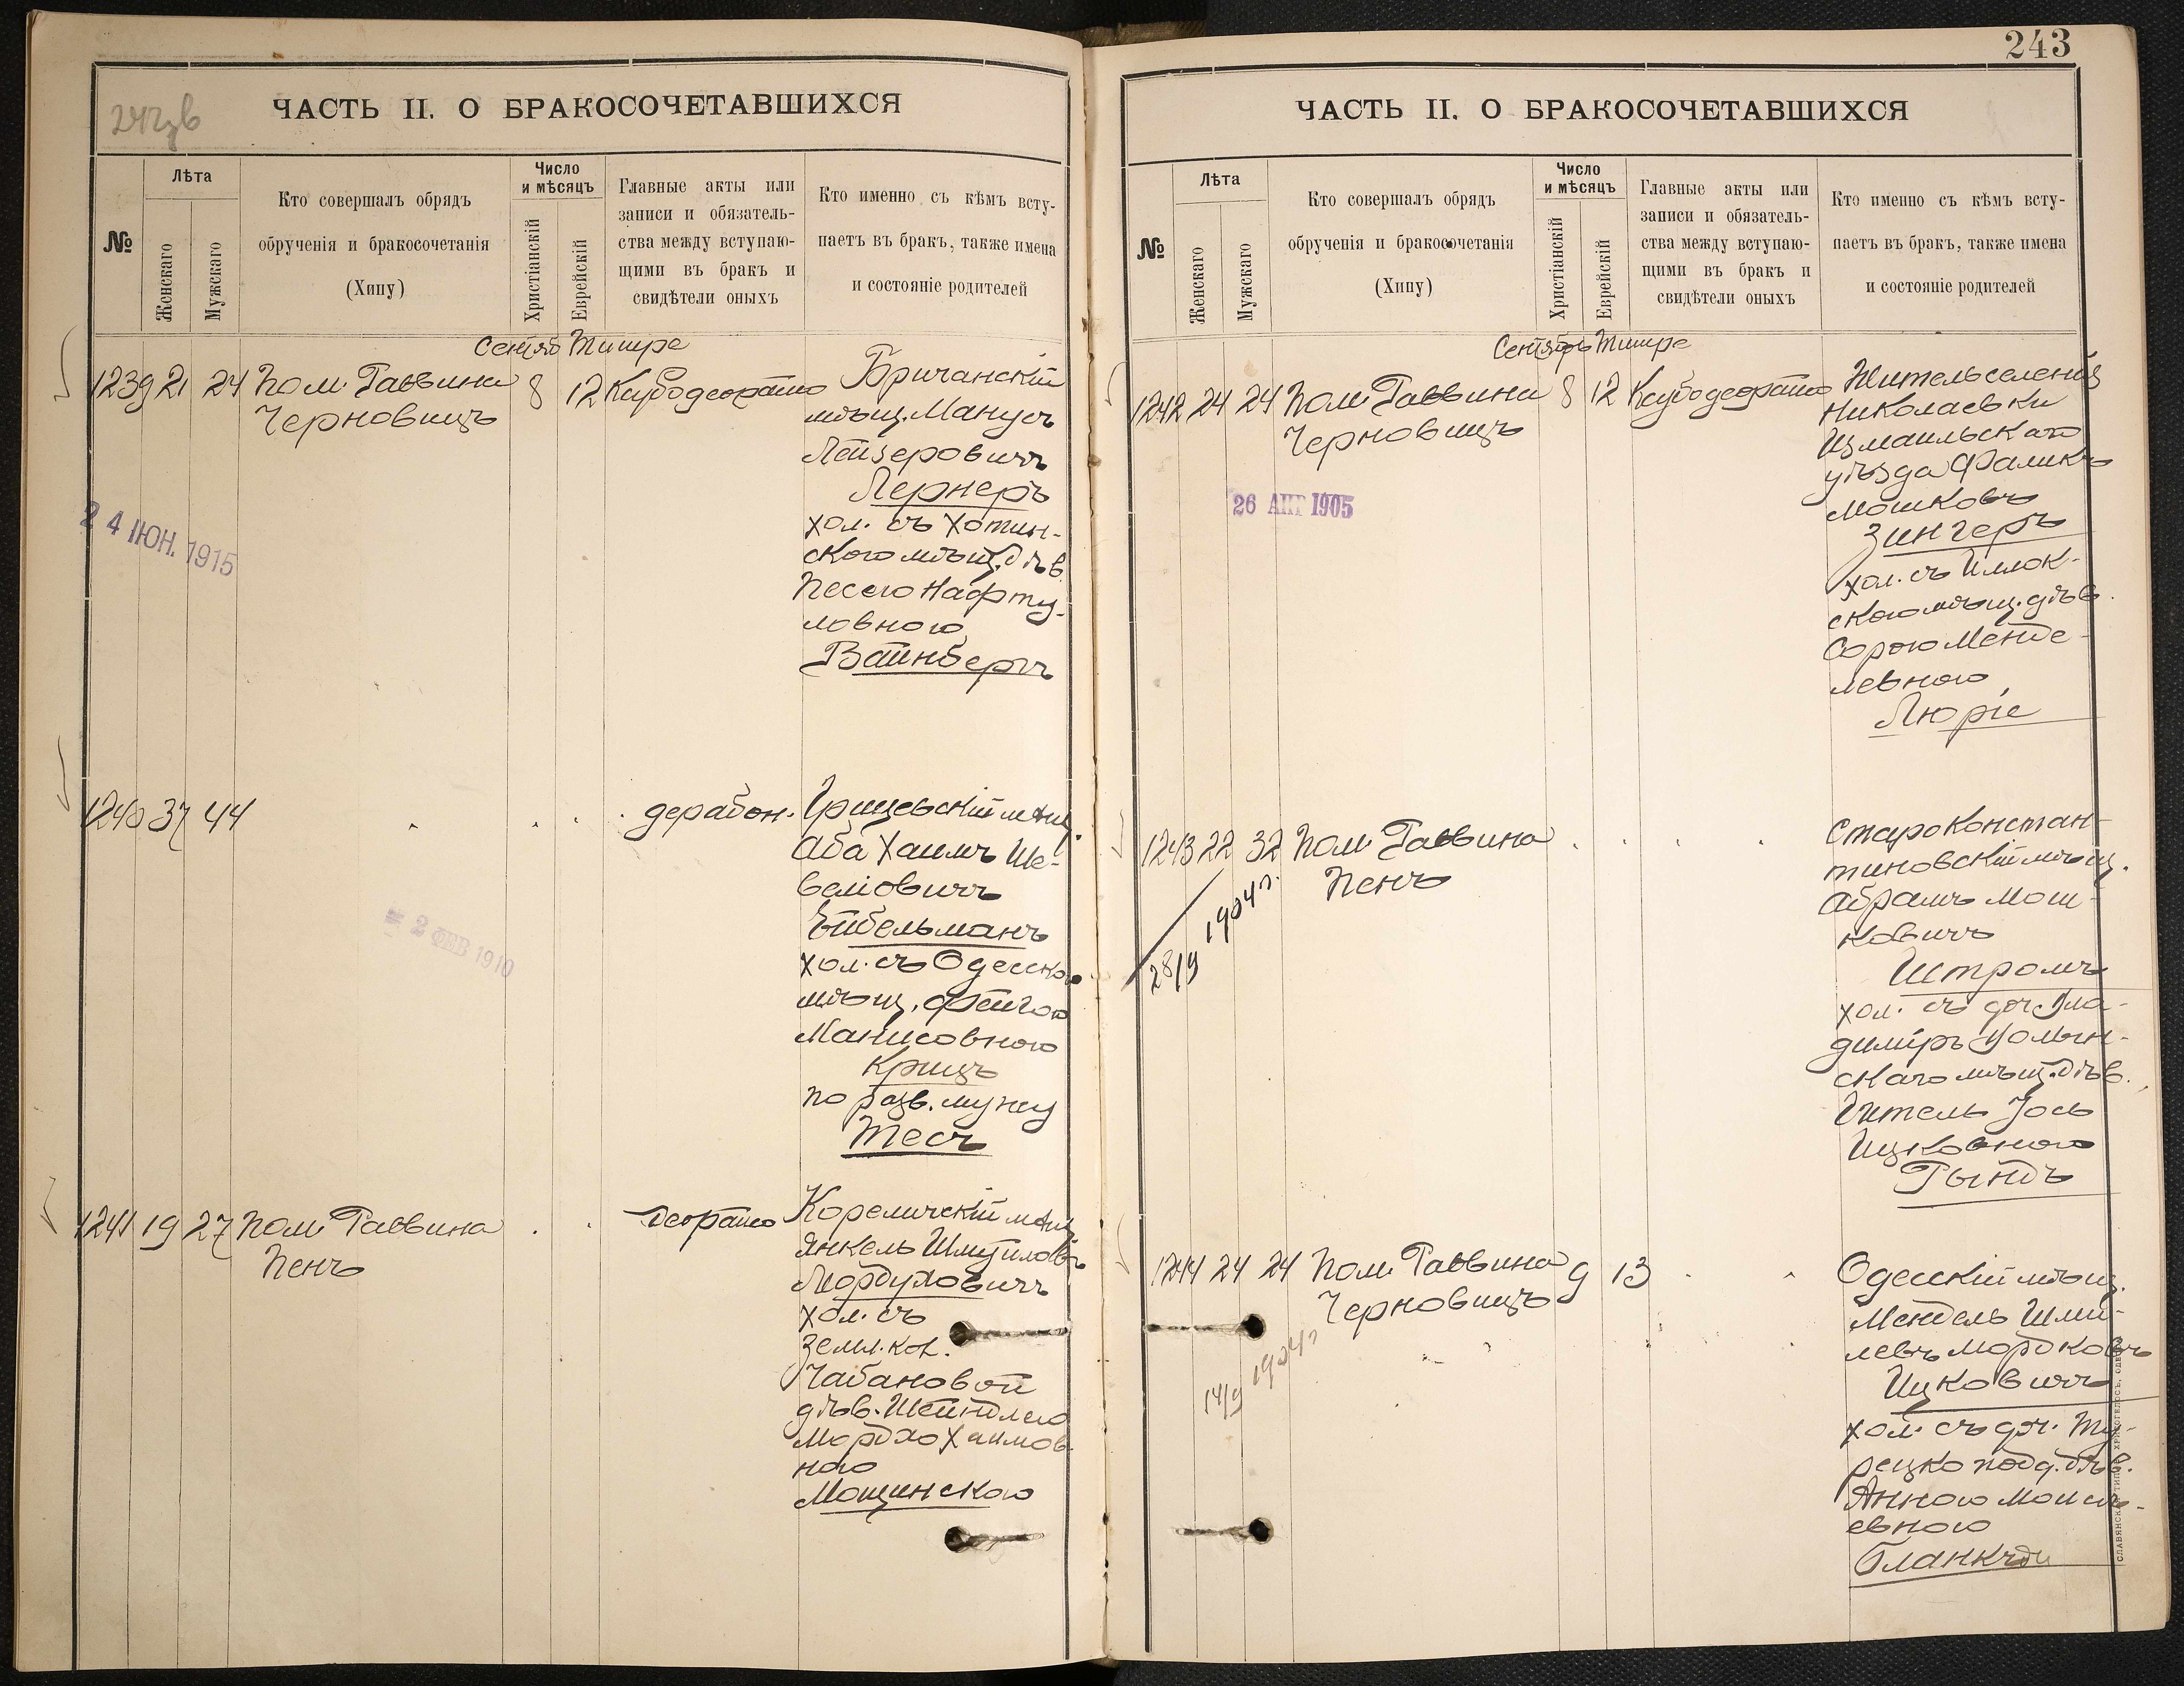 242зв
ЧАСТЬ II. О БРАКОСОЧЕТАВШИХСЯ
№
Лѣта
Женскаго
Мужскаго
Кто совершалъ обрядъ
обрученія и бракосочетанія
(Хипу)
Число
и мѣсяцъ
Христіанскій
Еврейскій
Главные акты или
записи и обязатель-
ства между вступаю-
щими въ бракъ и
свидѣтели оныхъ
Кто именно съ кѣмъ всту-
паетъ въ бракъ, также имена
и состояніе родителей
Сентяб Тишре
1239 21 24 Пом. Раввина 8 12
Черновицъ
Бричанскій
мѣщ. Манусъ
Лейзеровичъ
Лернеръ
хол. съ Хотин-
ского мѣщ. дѣв.
Песею Нафту-
ловною
Вайнбергъ
24 ІЮН. 1915
1240 37 44
Грицевскій мѣщ.
Аба Хаимъ Ше-
веліовичъ
Ейбельманъ
хол. съ Одесскою
мѣщ. Фейгою
Манисовною
Крицъ
по разв. мужу
Тесъ
2 ФЕВ 1910
1241 19 27 Пом. Раввина
Пенъ
Кореличскій мѣщ.
Янкель Шмуиловъ
Мордуховичъ
хол. съ
земл. кол.
Чабановой
дѣв. Шейндлею
Мордхо Хаимов-
ною
Мощинскою
243
ЧАСТЬ II. О БРАКОСОЧЕТАВШИХСЯ
№
Лѣта
Женскаго
Мужскаго
Кто совершалъ обрядъ
обрученія и бракосочетанія
(Хипу)
Число
и мѣсяцъ
Христіанскій
Еврейскій
Главные акты или
записи и обязатель-
ства между вступаю-
щими въ бракъ и
свидѣтели оныхъ
Кто именно съ кѣмъ всту-
паетъ въ бракъ, также имена
и состояніе родителей
Сентябрь Тишре
1242 24 24 Пом. Раввина 8 12
Черновицъ
Житель селенія
Николаевки
Измаильскаго
уѣзда Фаликъ
Мошковъ
Зингеръ
хол. съ Иллок-
скою мѣщ. дѣв.
Сорою Менде-
левною
Люріе
26 АПР 1905
1243 22 32 Пом. Раввина
Пенъ
Староконстан-
тиновскій мѣщ.
Абрамъ Мош-
ковичъ
Штромъ
хол. съ доч. Вла-
диміръ Волын-
скаго мѣщ. дѣв.
Гитель Іось
Ицковною
Рындъ
28/9 1904 г.
1244 24 24 Пом. Раввина 9 13
Черновицъ
Одесскій мѣщ.
Мендель Шми-
левъ Мордковъ
Ицковичъ
хол. съ доч. Ту-
рецко подд. дѣв.
Анною Моисе-
евною
14/9 1904 г